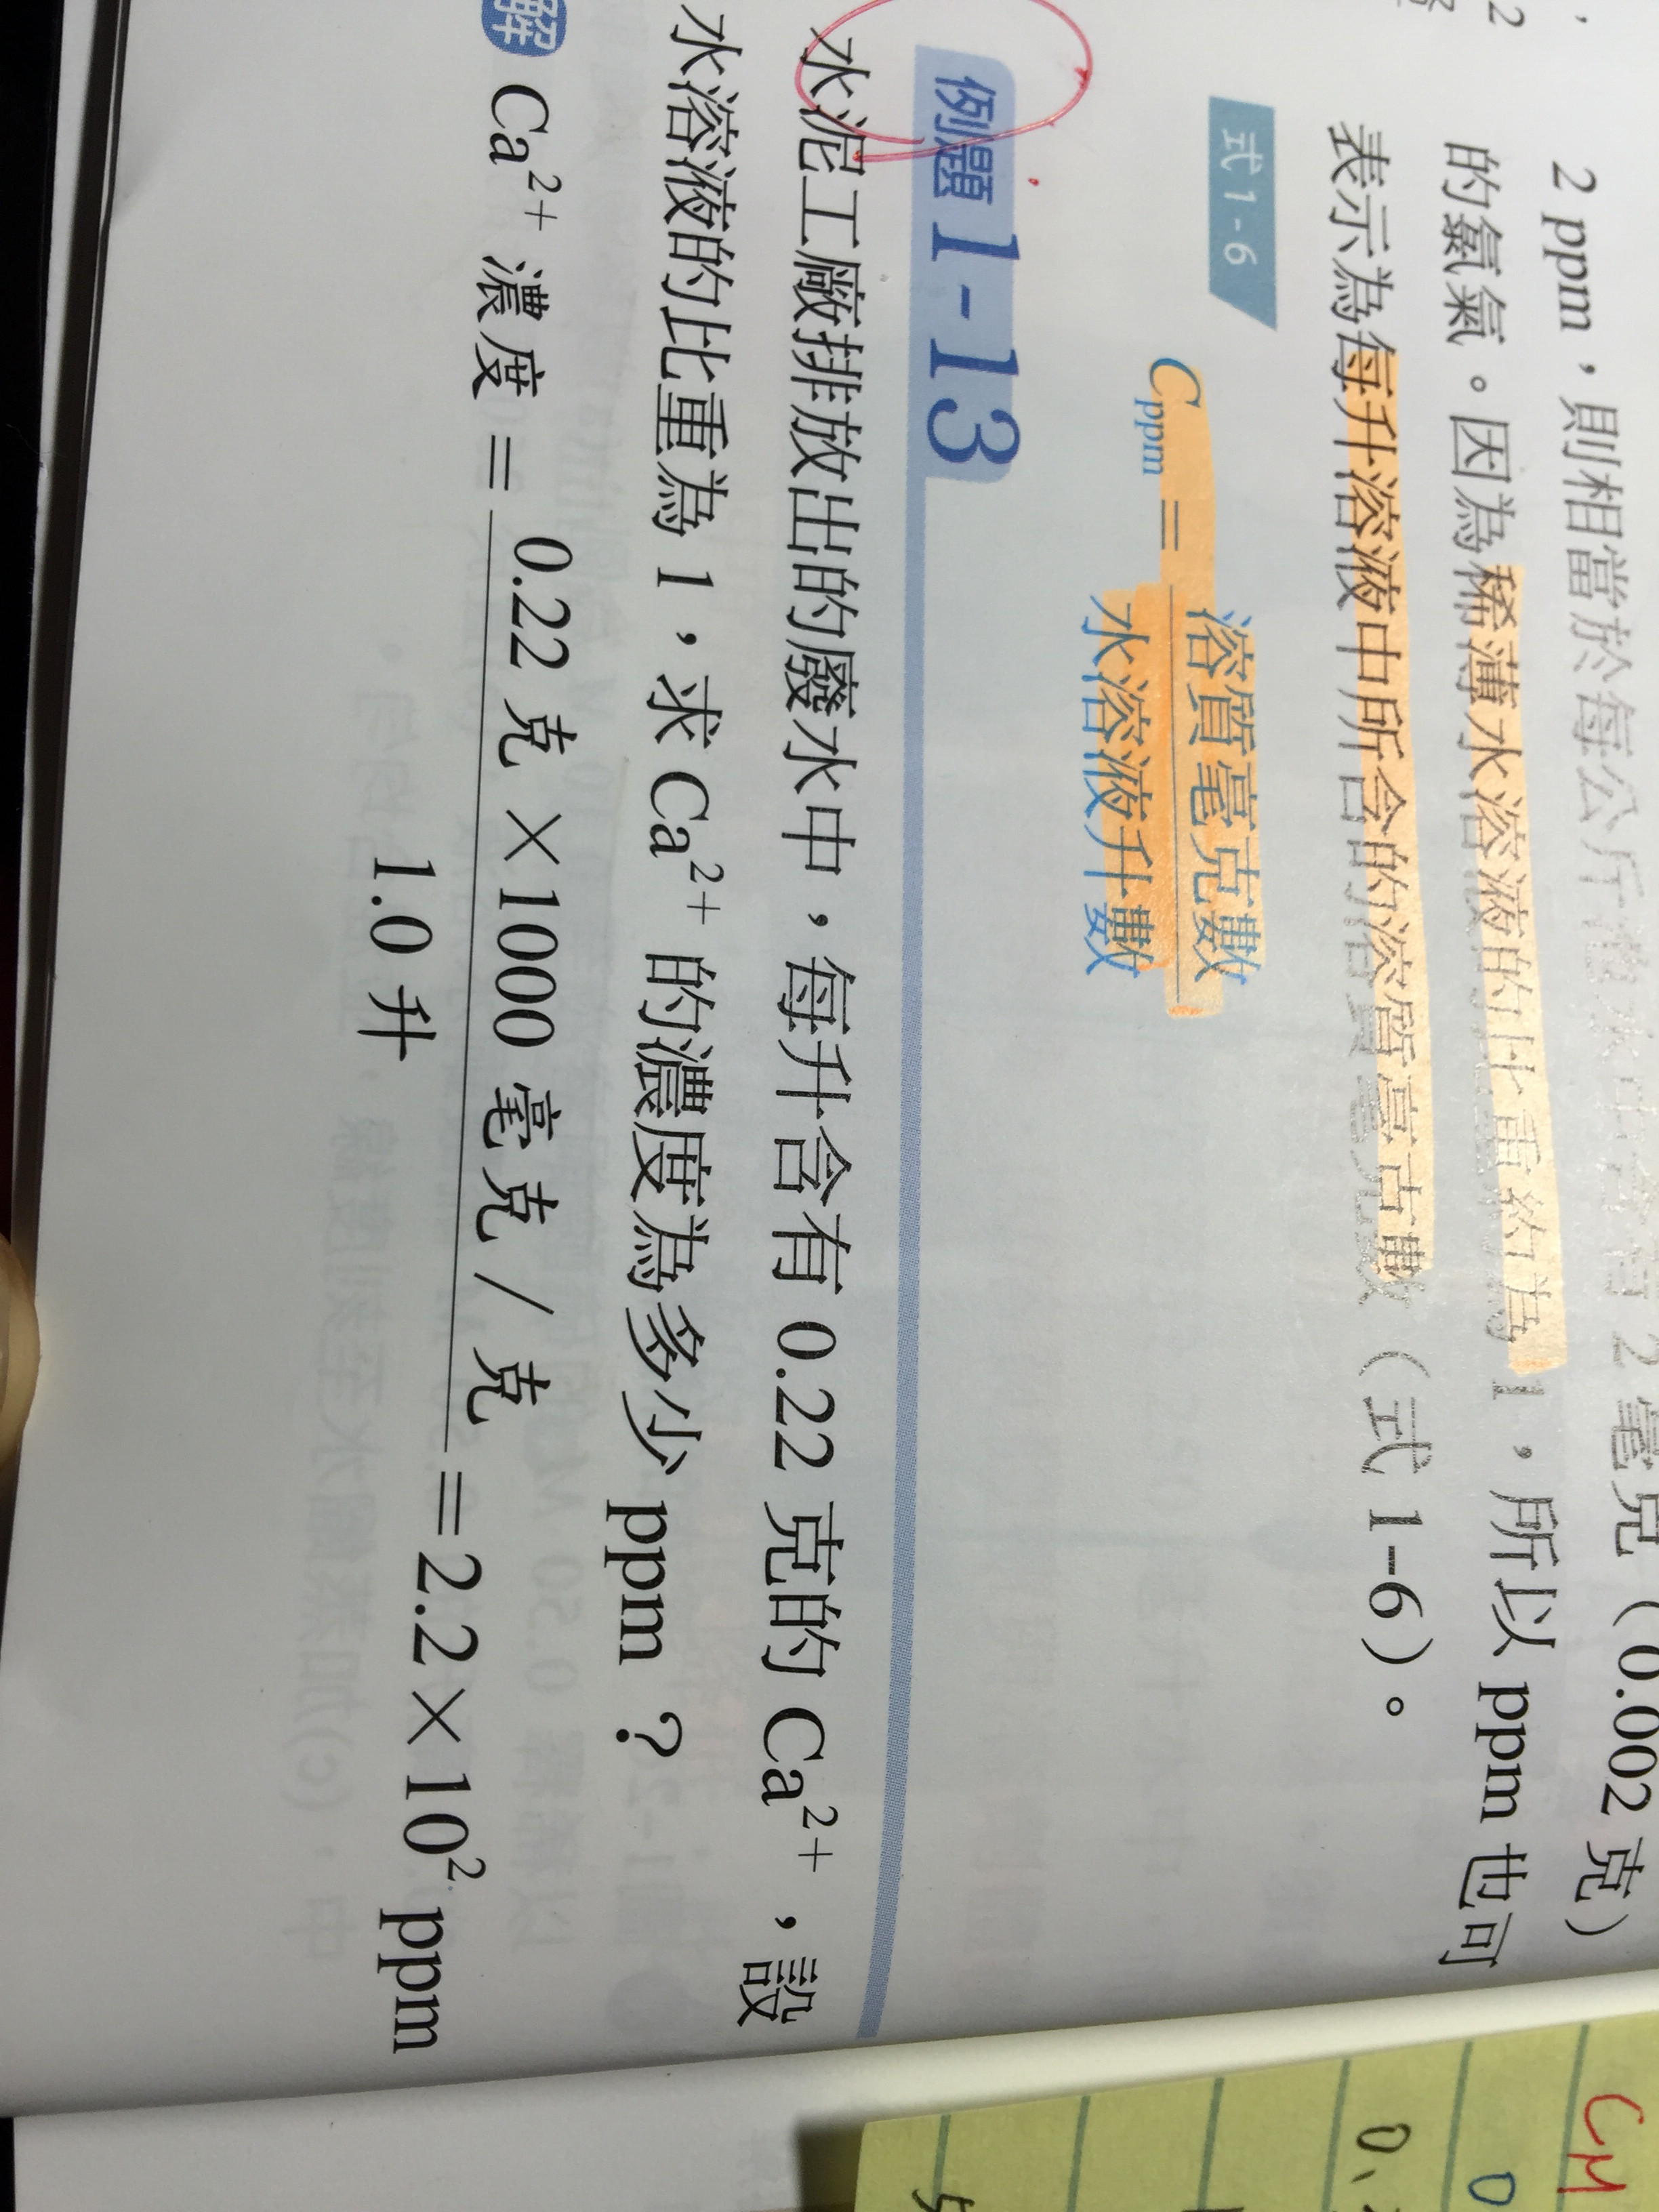 2 ppm，則相當於每公斤 水中含有 2 毫克（0.002 克）
的氯氣。因為稀薄水溶液的比重約為 1，所以 ppm 也可
表示為每升溶液中所含的溶質毫克數（式 1-6）。
式 1-6
Cppm = 溶質毫克數 / 水溶液升數
例題 1-13
水泥工廠排放出的廢水中，每升含有 0.22 克的 Ca²⁺，設
水溶液的比重為 1，求 Ca²⁺ 的濃度為多少 ppm？
解 Ca²⁺ 濃度 = 0.22 克 × 1000 毫克 / 克 / 1.0 升 = 2.2 × 10² ppm
CM
0